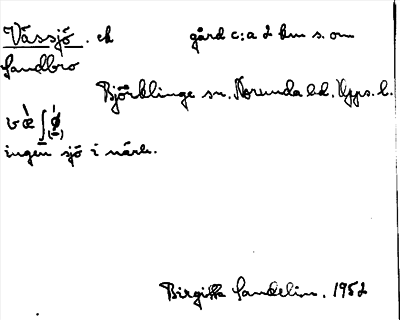 Vässjö. ek gård c:a 2 km s. om
Sandbro
Björklinge sn. Norunda hd. Upps. l.
ingen sjö i närh.
Birgitta Sandelin. 1952